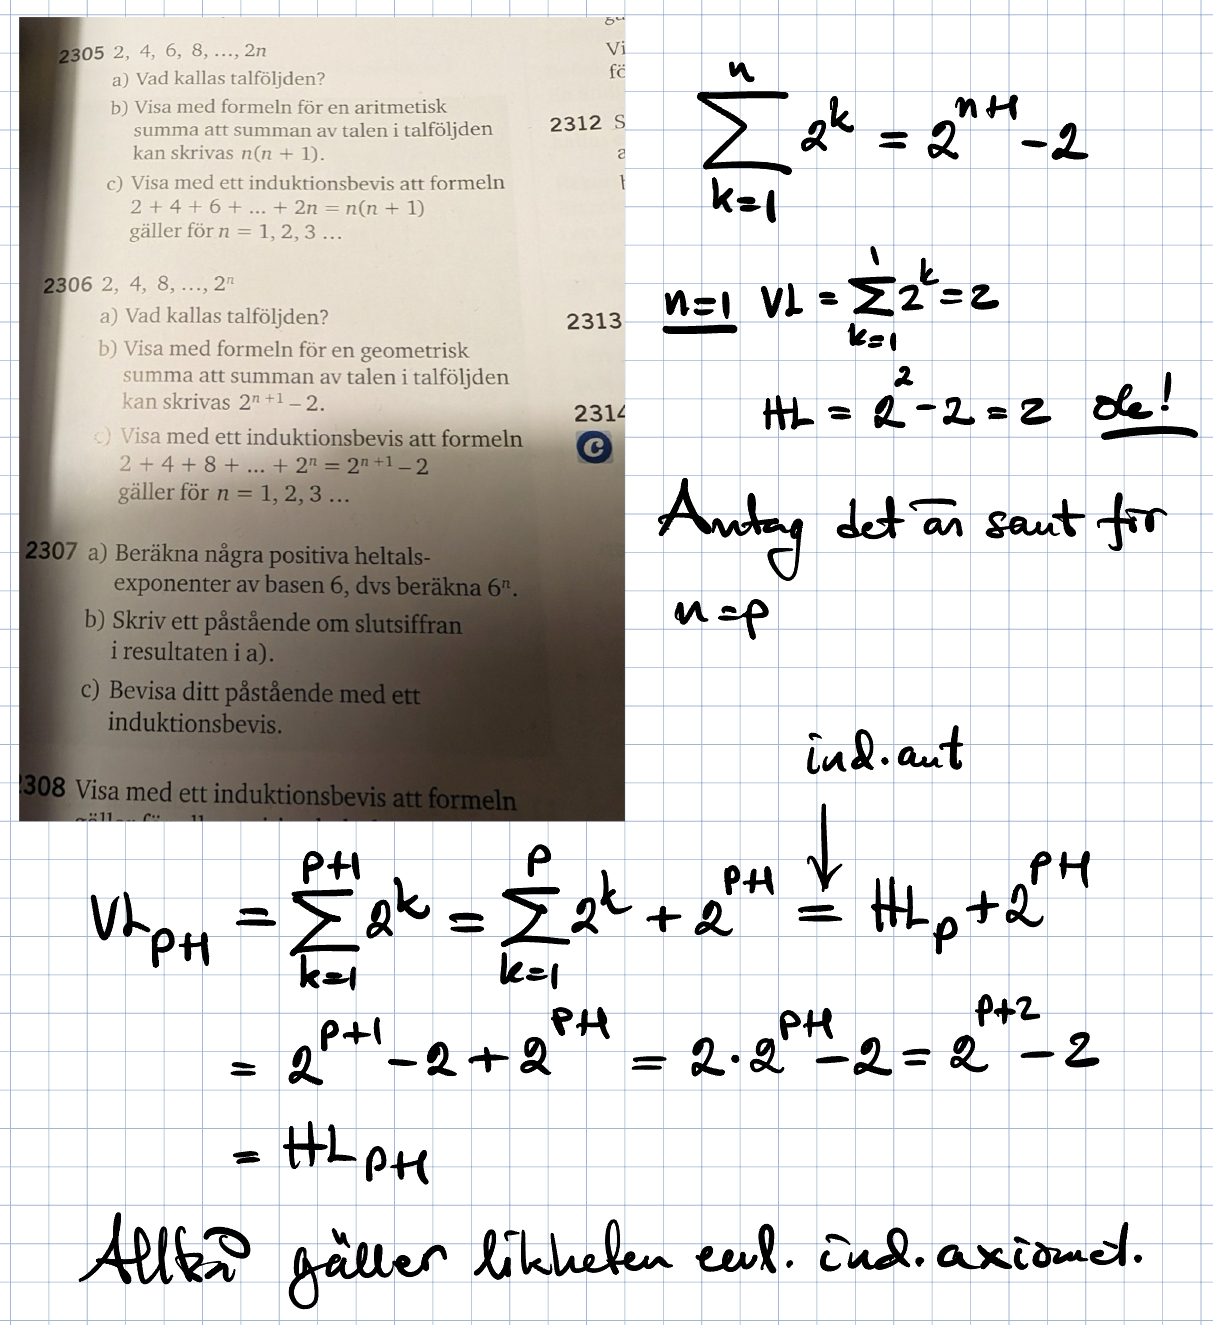 2305 2, 4, 6, 8, ..., 2n
a) Vad kallas talföljden?
b) Visa med formeln för en aritmetisk
summa att summan av talen i talföljden
kan skrivas n(n + 1).
c) Visa med ett induktionsbevis att formeln
2 + 4 + 6 + ... + 2n = n(n + 1)
gäller för n = 1, 2, 3 ...
2306 2, 4, 8, ..., 2ⁿ
a) Vad kallas talföljden?
b) Visa med formeln för en geometrisk
summa att summan av talen i talföljden
kan skrivas 2ⁿ⁺¹ – 2.
c) Visa med ett induktionsbevis att formeln
2 + 4 + 8 + ... + 2ⁿ = 2ⁿ⁺¹ – 2
gäller för n = 1, 2, 3 ...
2307 a) Beräkna några positiva heltals-
exponenter av basen 6, dvs beräkna 6ⁿ.
b) Skriv ett påstående om slutsiffran
i resultaten i a).
c) Bevisa ditt påstående med ett
induktionsbevis.
308 Visa med ett induktionsbevis att formeln
Vi
fö
2312 S
a
2313
2314
C
n
∑ 2ᵏ = 2ⁿ⁺¹ - 2
k=1
n=1 VL = ∑ₖ₌₁¹ 2ᵏ = 2
HL = 2² - 2 = 2 ok!
Antag det är sant för
n = p
ind.ant
↓
VLₚ₊₁ = ∑ₖ₌₁ᵖ⁺¹ 2ᵏ = ∑ₖ₌₁ᵖ 2ᵏ + 2ᵖ⁺¹ = HLₚ + 2ᵖ⁺¹
= 2ᵖ⁺¹ - 2 + 2ᵖ⁺¹ = 2·2ᵖ⁺¹ - 2 = 2ᵖ⁺² - 2
= HLₚ₊₁
Alltså gäller likheten enl. ind.axiomet.